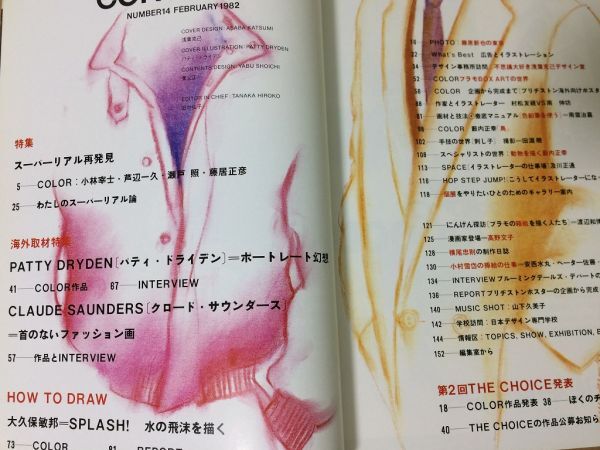 NUMBER14 FEBRUARY1982
COVER DESIGN : ASABA KATSUMI
浅葉克己
COVER ILLUSTRATION : PATTY DRYDEN
パティ・ドライデン
CONTENTS DESIGN : YABU SHOICHI
EDITOR IN CHIEF : TANAKA HIROKO
特集
スーパーリアル再発見
5──COLOR：小林幸士・芦辺一久・瀬戸 照・藤居正彦
25──わたしのスーパーリアル論
海外取材特集
PATTY DRYDEN［パティ・ドライデン］＝ポートレート幻想
41──COLOR作品 67──INTERVIEW
CLAUDE SAUNDERS［クロード・サウンダース］
＝首のないファッション画
57──作品とINTERVIEW
HOW TO DRAW
大久保敏邦＝SPLASH! 水の飛沫を描く
73──COLOR 81──REPORT
16──PHOTO：藤原新也の東京
32──What's Best 広告とイラストレーション
34──デザイン事務所訪問 不思議大好き浅葉克己デザイン室
52──COLORプラモBOX ARTの世界
58──COLOR 企画から完成まで［ブリヂストン海外向けポス
88──作家とイラストレーター 村松友視VS南 伸坊
98──COLOR 薮内正幸「鳥」
102──手技の世界［刺し子］ 撮影─田淵暁
108──スペシャリストの世界：動物を描く薮内正幸
113──SPACE［イラストレーターの仕事場］及川正通
116──HOP STEP JUMP! こうしてイラストレーターにな
118──個展をやりたいひとのためのギャラリー案内
121──にんげん探訪［プラモの箱絵を描く人たち］─渡辺和博
125──漫画家登場─高野文子
128──横尾忠則の制作日誌
130──小村雪岱の挿絵の仕事─安西水丸・ペーター佐藤
134──INTERVIEWブルーミングデールズ・デパートの
136──REPORTブリヂストンポスターの企画から完成
140──MUSIC SHOT：山下久美子
142──学校訪問：日本デザイン専門学校
144──情報区：TOPICS, SHOW, EXHIBITION, B
152──編集室から
第2回THE CHOICE発表
18──COLOR作品発表 38──ぼくのチ
40──THE CHOICEの作品公募お知ら